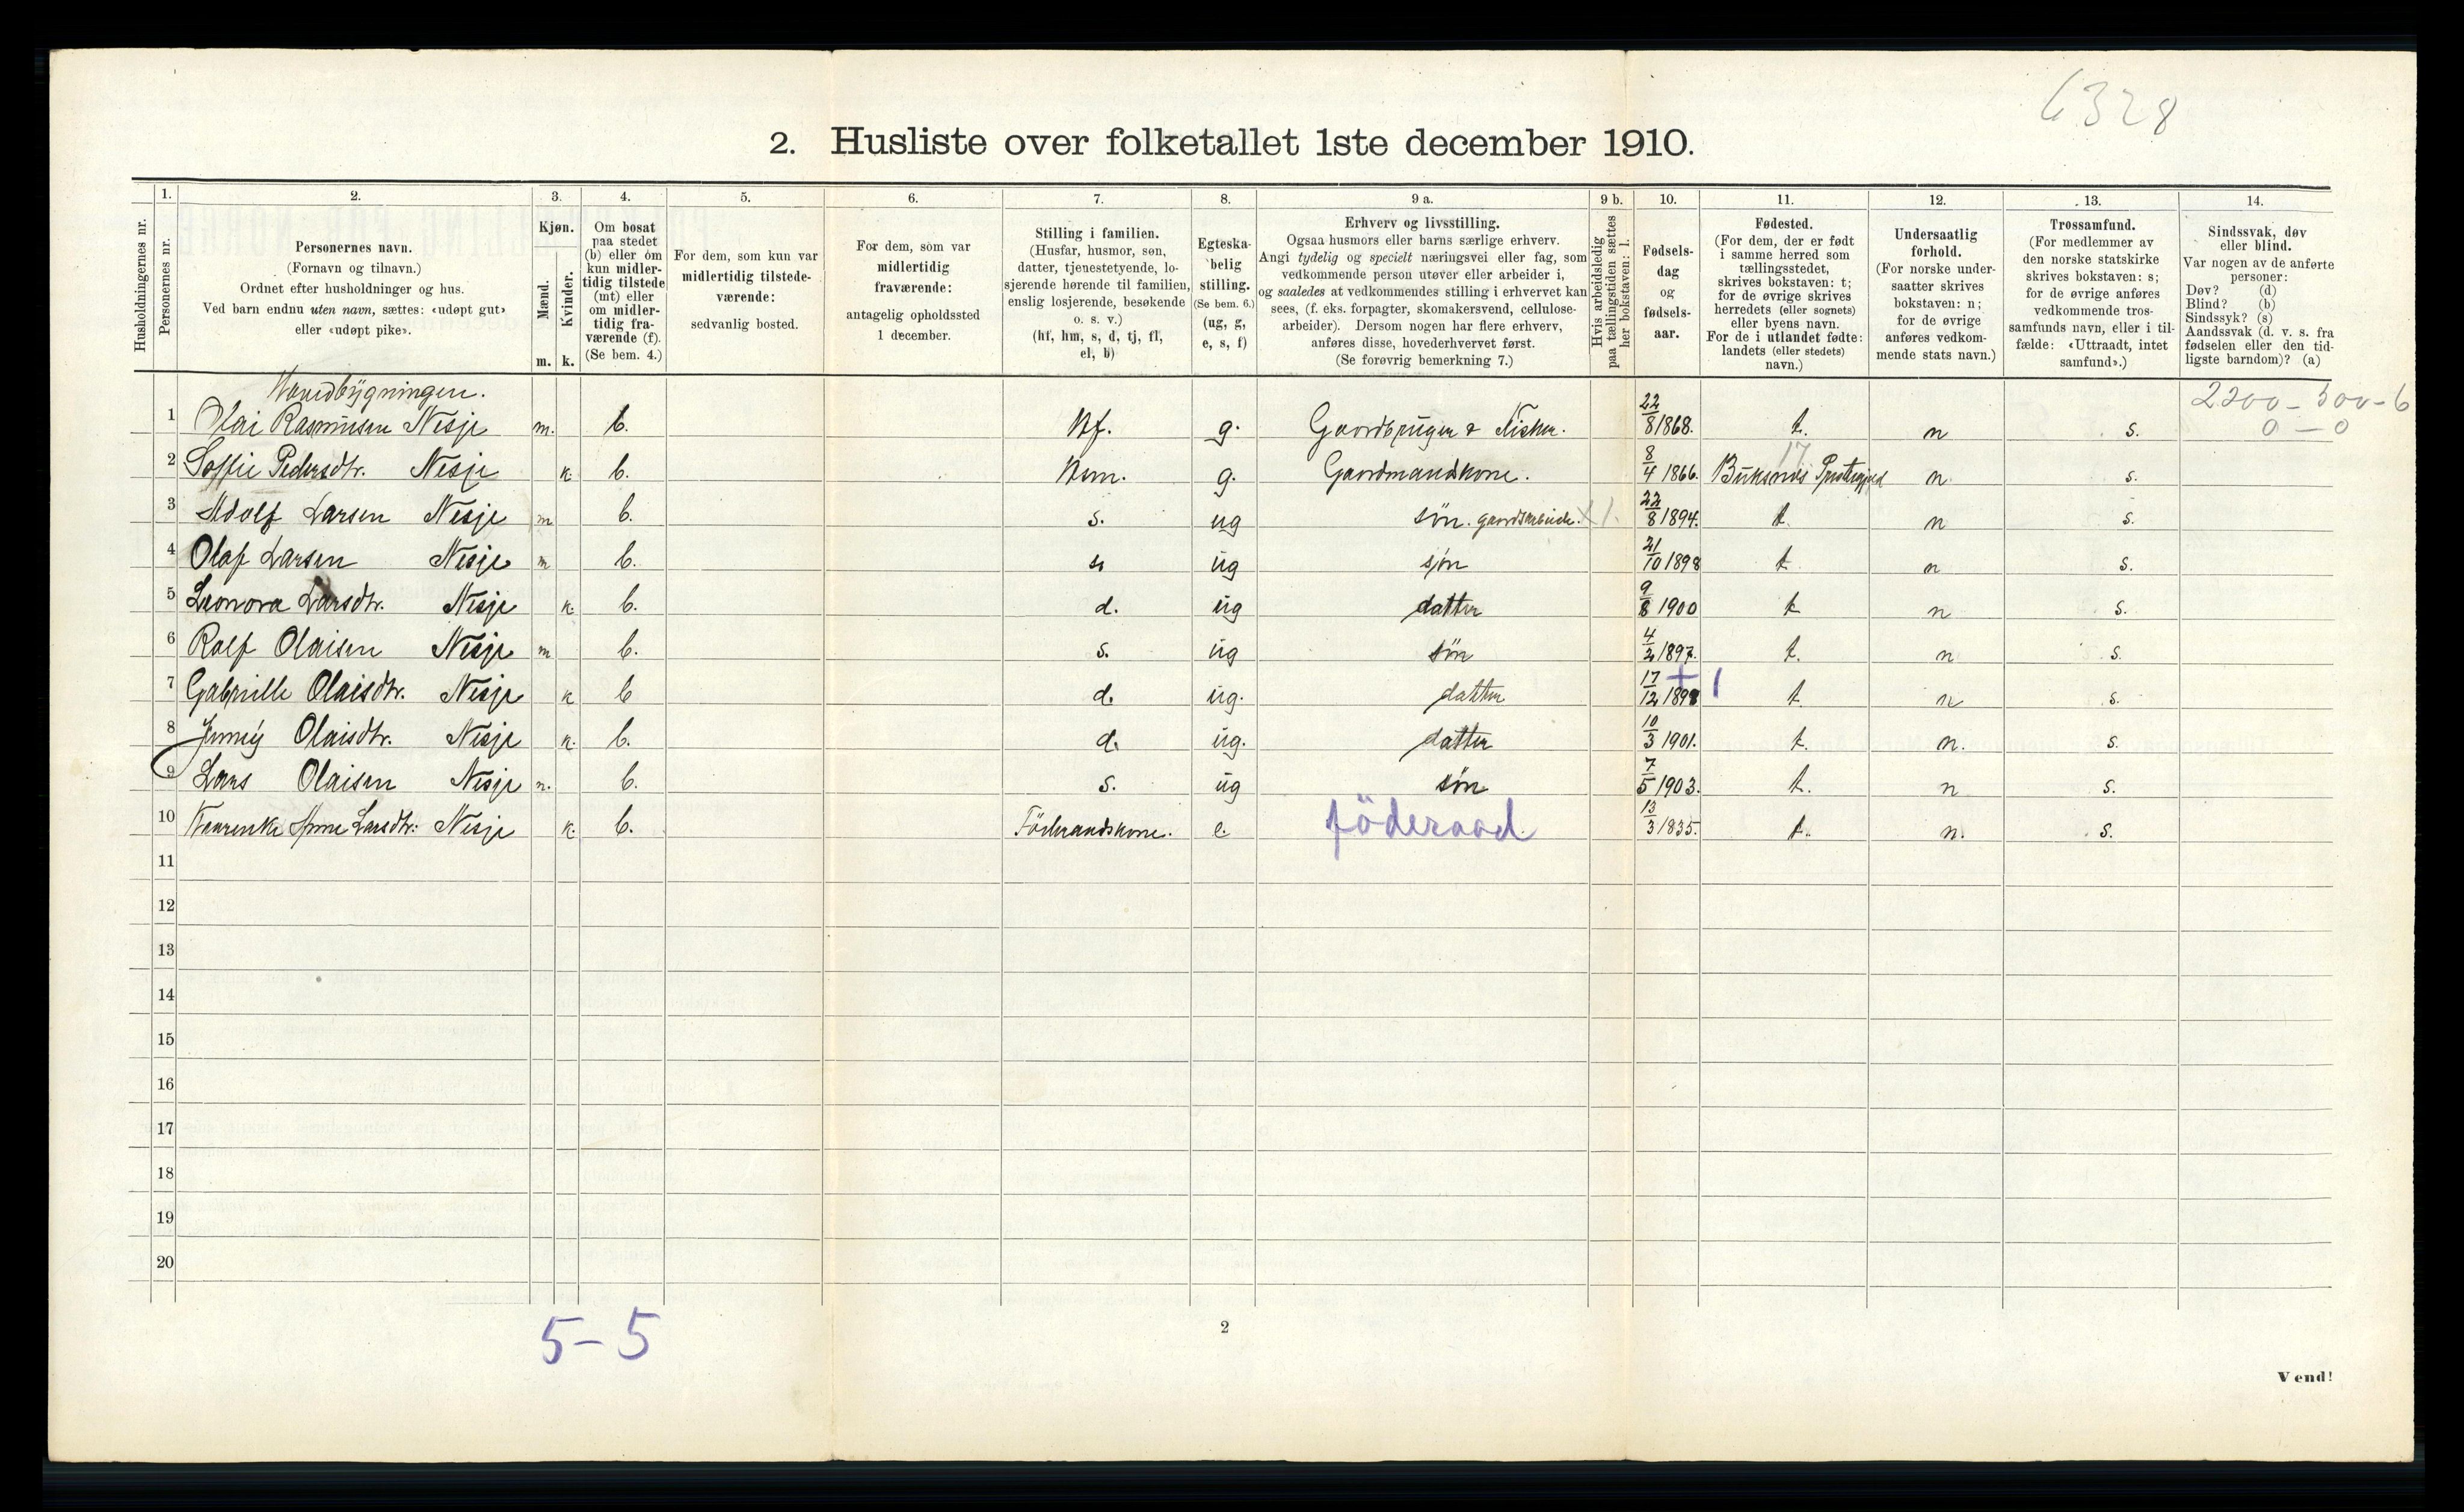 6328
2. Husliste over folketallet 1ste december 1910.
Husholdningernes nr.
1.
Personernes nr.
2.
Personernes navn.
(Fornavn og tilnavn.)
Ordnet efter husholdninger og hus.
Ved barn endnu uten navn, sættes: «udøpt gut»
eller «udøpt pike».
3.
Kjøn.
Mænd.
Kvinder.
m. k.
4.
Om bosat
paa stedet
(b) eller om
kun midler-
tidig tilstede
(mt) eller
om midler-
tidig fra-
værende (f).
(Se bem. 4.)
5.
For dem, som kun var
midlertidig tilstede-
værende:
sedvanlig bosted.
6.
For dem, som var
midlertidig
fraværende:
antagelig opholdssted
1 december.
7.
Stilling i familien.
(Husfar, husmor, søn,
datter, tjenestetyende, lo-
sjerende hørende til familien,
enslig losjerende, besøkende
o. s. v.)
(hf, hm, s, d, tj, fl,
el, b)
8.
Egteska-
belig
stilling.
(Se bem. 6.)
(ug, g,
e, s, f)
9 a.
Erhverv og livsstilling.
Ogsaa husmors eller barns særlige erhverv.
Angi tydelig og specielt næringsvei eller fag, som
vedkommende person utøver eller arbeider i,
og saaledes at vedkommendes stilling i erhvervet kan
sees, (f. eks. forpagter, skomakersvend, cellulose-
arbeider). Dersom nogen har flere erhverv,
anføres disse, hovederhvervet først.
(Se forøvrig bemerkning 7.)
9 b.
Hvis arbeidsledig
paa tællingstiden sættes
her bokstaven: l.
10.
Fødsels-
dag
og
fødsels-
aar.
11.
Fødested.
(For dem, der er født
i samme herred som
tællingsstedet,
skrives bokstaven: t;
for de øvrige skrives
herredets (eller sognets)
eller byens navn.
For de i utlandet fødte:
landets (eller stedets)
navn.)
12.
Undersaatlig
forhold.
(For norske under-
saatter skrives
bokstaven: n;
for de øvrige
anføres vedkom-
mende stats navn.)
13.
Trossamfund.
(For medlemmer av
den norske statskirke
skrives bokstaven: s;
for de øvrige anføres
vedkommende tros-
samfunds navn, eller i til-
fælde: «Uttraadt, intet
samfund».)
14.
Sindssvak, døv
eller blind.
Var nogen av de anførte
personer:
Døv? (d)
Blind? (b)
Sindssyk? (s)
Aandssvak (d. v. s. fra
fødselen eller den tid-
ligste barndom)? (a)
Hovedbygningen.
2200 - 300 - 6
0 - 0
1 Olai Rasmusen Nesje m. b. Hf. g. Gaardbruger & Fisker. 22/8 1868. t. n s.
17
2 Soffie Pedersdtr. Nesje k. b. Hm. g. Gaardmandskone. 8/4 1866. Buksnes n. s.
3 Adolf Larsen Nesje m b. s. ug søn. gaardsarbeide. 22/8 1894. t. n s.
4 Olaf Larsen Nesje m b. s. ug sjøn 21/10 1898 t. n s.
5 Leonora Larsdtr. Nesje k. b. d. ug datter 9/8 1900 t n s.
6 Rolf Olaisen Nesje m b. s. ug søn 4/2 1897. t. n s.
7 Gabrielle Olaisdtr. Nesje k b d. ug. datter 17/12 1898 t. n s.
8 Jenny Olaisdtr. Nesje k. b. d. ug. datter 10/3 1901. t. n. s.
9 Lars Olaisen Nesje m. b. s. ug søn 7/5 1903. t. n s.
10 Anne Larsdtr. Nesje k. b. Föderaadskone. e. föderaad 13/3 1835. t. n. s.
11
12
13
14
15
16
17
18
19
20
5 - 5
2
Vend!